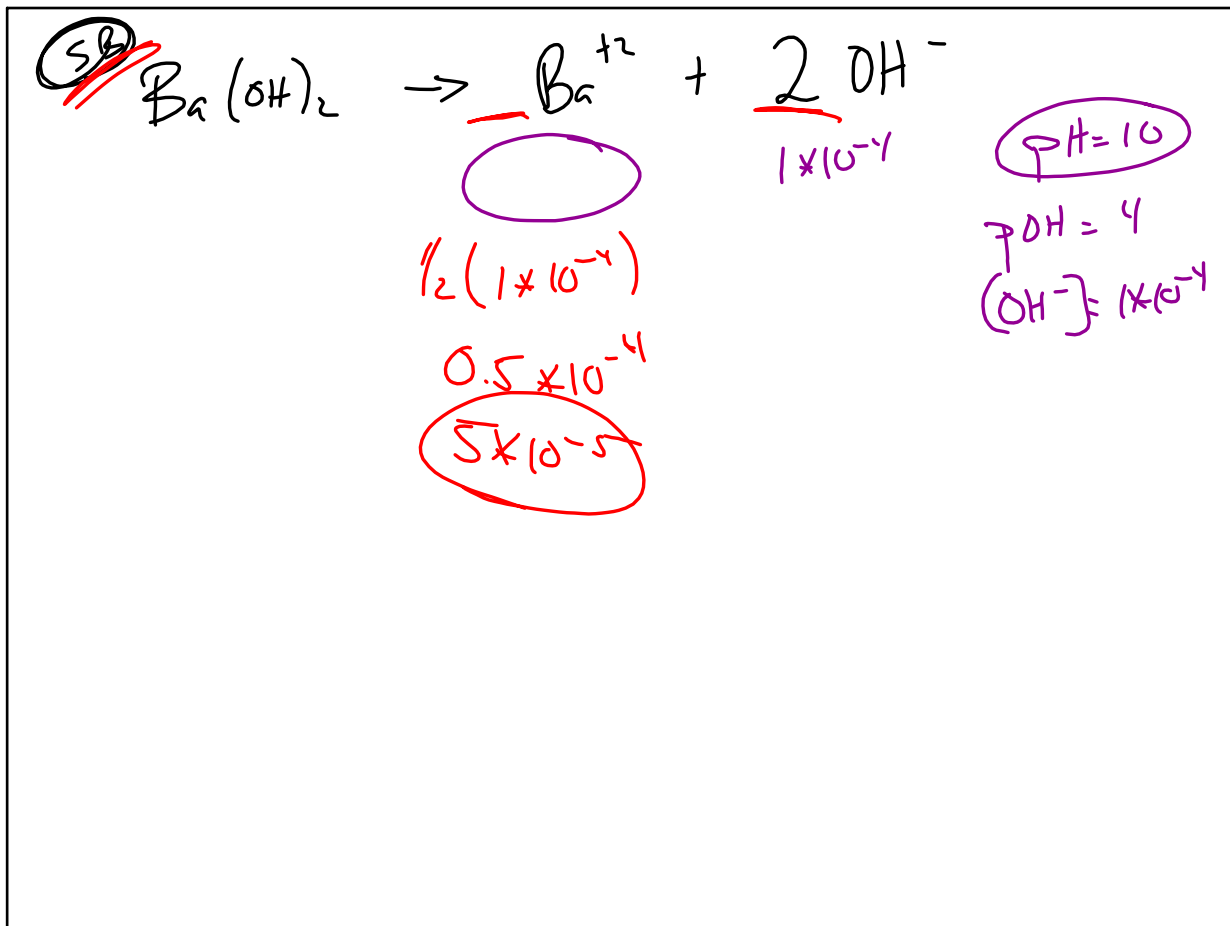 SB
Ba(OH)₂ → Ba⁺² + 2 OH⁻
1*10⁻⁴
pH=10
pOH = 4
(OH⁻]= 1*10⁻⁴
1/2(1*10⁻⁴)
0.5*10⁻⁴
5*10⁻⁵